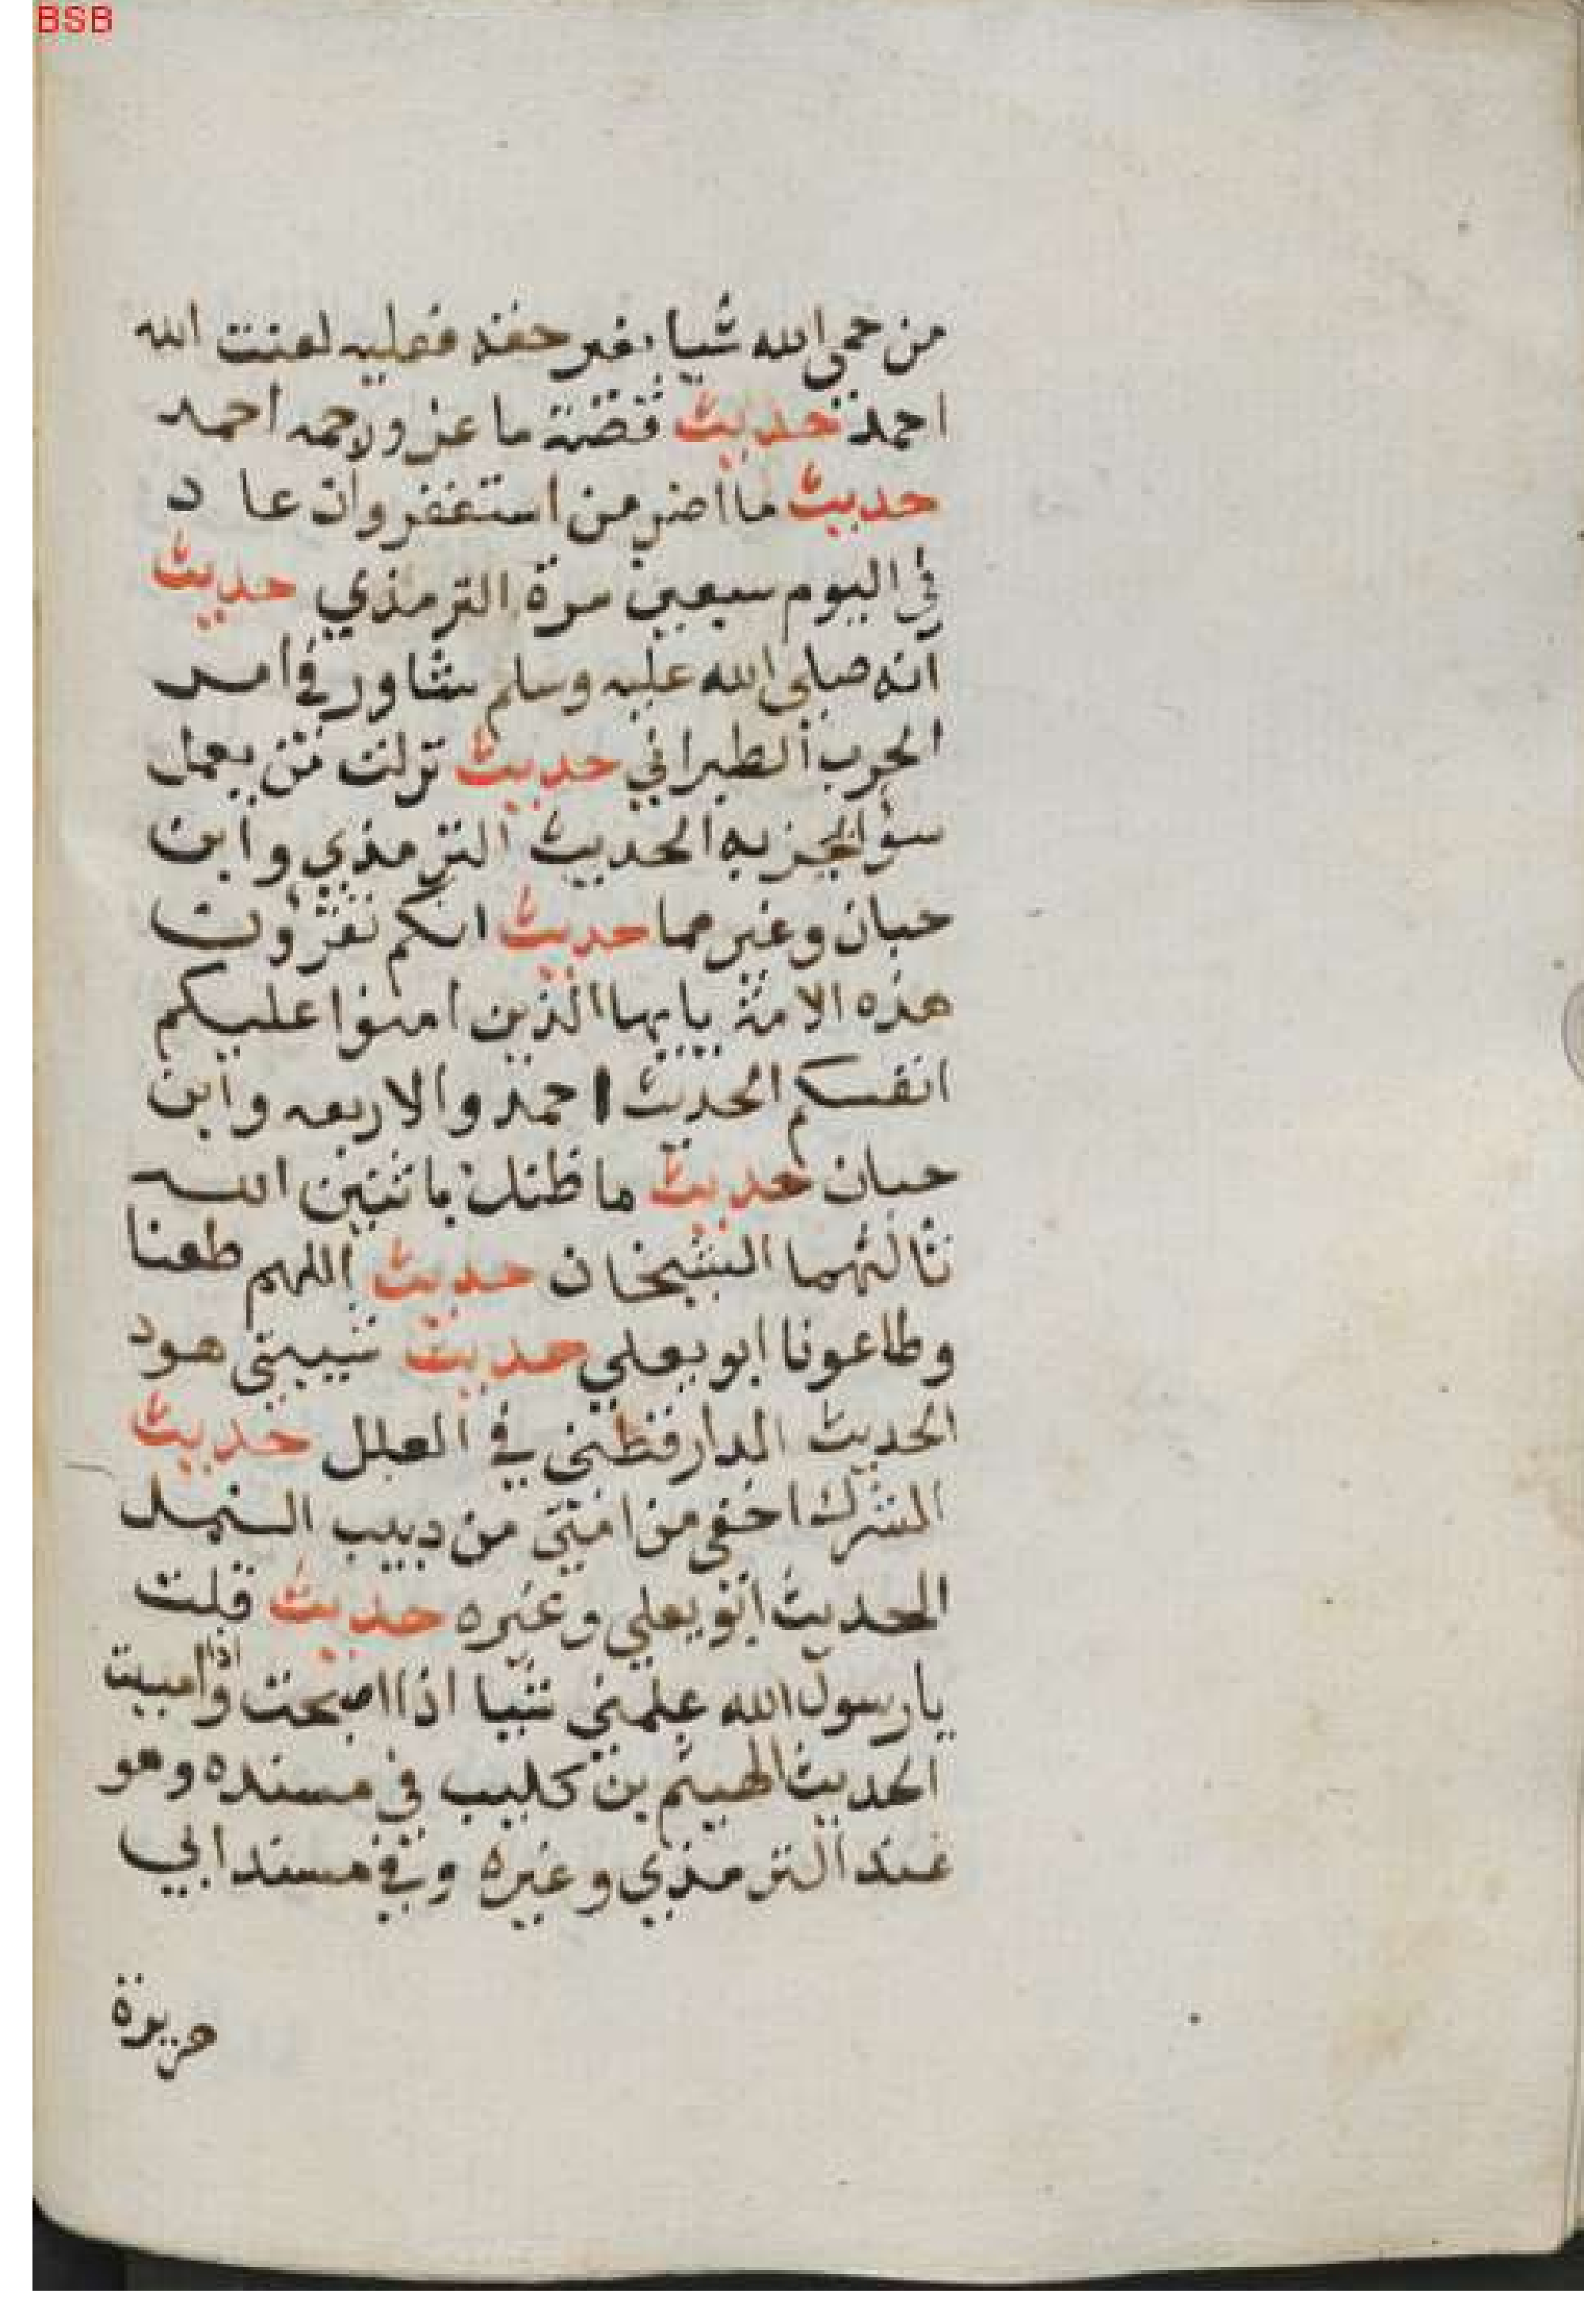 BSB
من حمى الله شيا بغير حقه فعليه لعنت الله
احمد حديث قصة ماعز ورجمه احمد
حديث ما اصر من استغفر وان عاد
في اليوم سبعين مرة الترمذي حديث
انه صلى الله عليه وسلم شاور في امر
الحرب الطبراني حديث نزلت من يعمل
سؤ ايجز به الحديث الترمذي وابن
حبان وغيرهما حديث انكم تقرؤن
هذه الامة يايها الذين امنوا عليكم
انفسكم الحديث احمد والاربعه وابن
حبان حديث ما ظنك باثنين الله
ثالثهما الشيخان حديث اللهم طعنا
وطاعونا ابو يعلي حديث شيبتني هود
الحديث الدارقطني في العلل حديث
الشرك اخفى من امتي من دبيب النمل
الحديث ابو يعلي وغيره حديث قلت
يا رسول الله علمني شيا اذا اصبحت واذا امسيت
الحديث الهيثم بن كليب في مسنده وهو
عند الترمذي وغيره وفي مسند ابي
هريرة